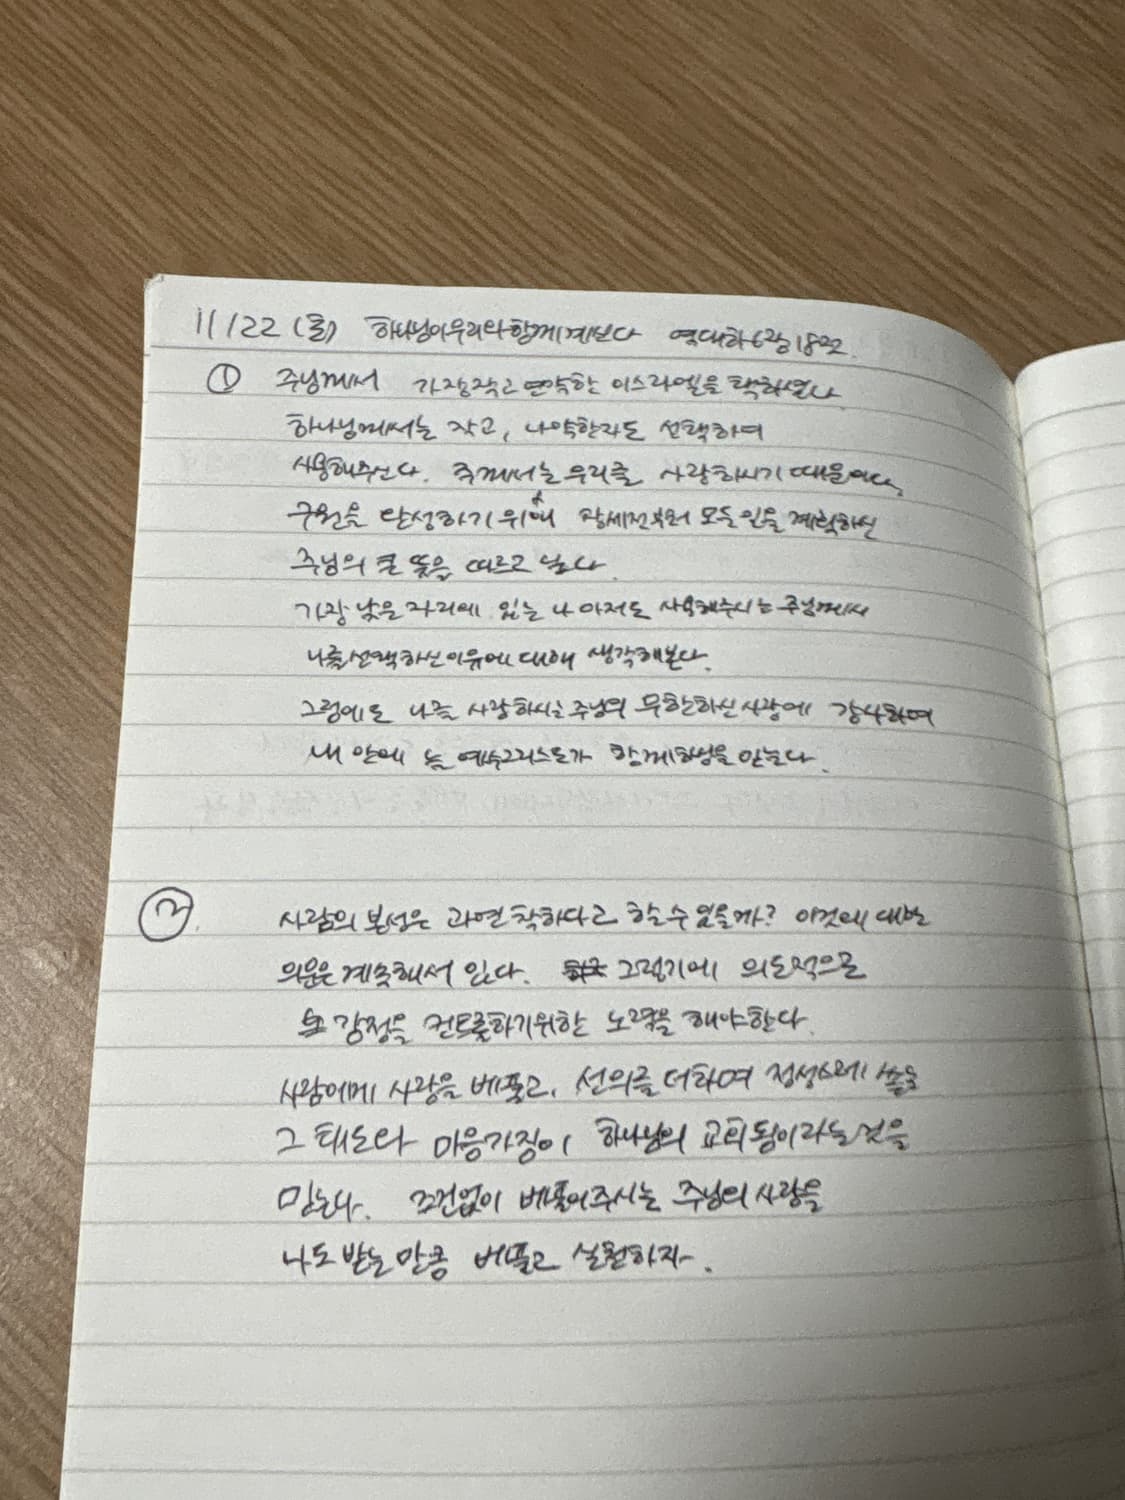 11/22 (토) 하나님이우리와함께계신다 역대하6장18절.
① 주님께서 가장작고 연약한 이스라엘을 택하셨다
하나님께서는 작고, 나약한자도 선택하여
사용해주신다. 주께서는 우리를 사랑하시기 때문이다.
구원을 완성하기 위해 창세전부터 모든일을 계획하신
주님의 큰 뜻을 따르고
가장 낮은 자리에 있는 나 사용해주시는 주님께서
나를선택하신이유에 대해 생각해본다.
그럼에도 나를 사랑하시는 주님의 무한하신 사랑에 감사하며
내 안에 늘 예수그리스도가 함께하심을 믿는다.
②. 사람의 본성은 과연 착하다고 할수 있을까? 이것에 대한
의문은 계속해서 있다. 그렇기에 의도적으로
감정을 컨트롤하기위한 노력을 해야한다.
사람에게 사랑을 베풀고, 선의를 더하며 정성스레
그 태도와 마음가짐이 하나님의 교회됨이라는것을
믿는다. 조건없이 베풀어주시는 주님의 사랑을
나도 받는 만큼 베풀고 실천하자.